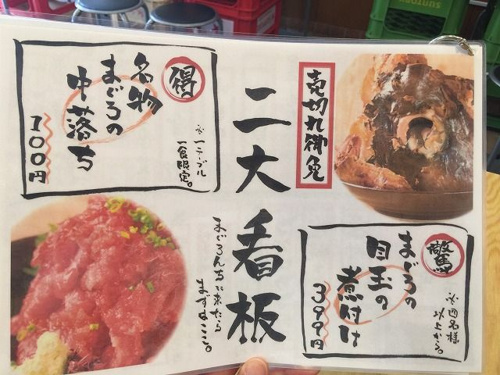 売切れ御免
二大看板
まぐろんちに来たら
まずはここ。
得
名物
まぐろの
中落ち
100円
※一テーブル
一食限定。
驚
まぐろの
目玉の
煮付け
399円
※四名様
以上から。